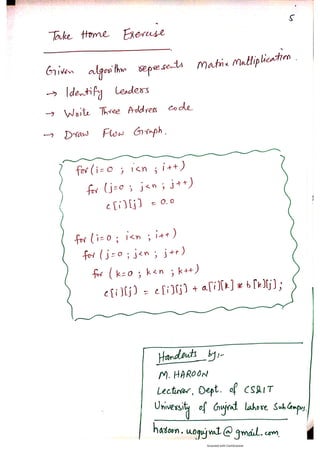 5
Take Home Exercise
Given algorithm represents Matrix Multiplication.
→ Identify Leaders
→ Write Three Address code.
→ Draw Flow Graph.
for (i=0 ; i<n ; i++)
for (j=0 ; j<n ; j++)
c[i][j] = 0.0
for (i=0 ; i<n ; i++)
for (j=0 ; j<n ; j++)
for (k=0 ; k<n ; k++)
c[i][j] = c[i][j] + a[i][k] * b[k][j] ;
Handouts by:-
M. HAROON
Lecturer, Dept. of CS&IT
University of Gujrat Lahore Sub Campus.
haroon.uogujrat@gmail.com
Scanned with CamScanner